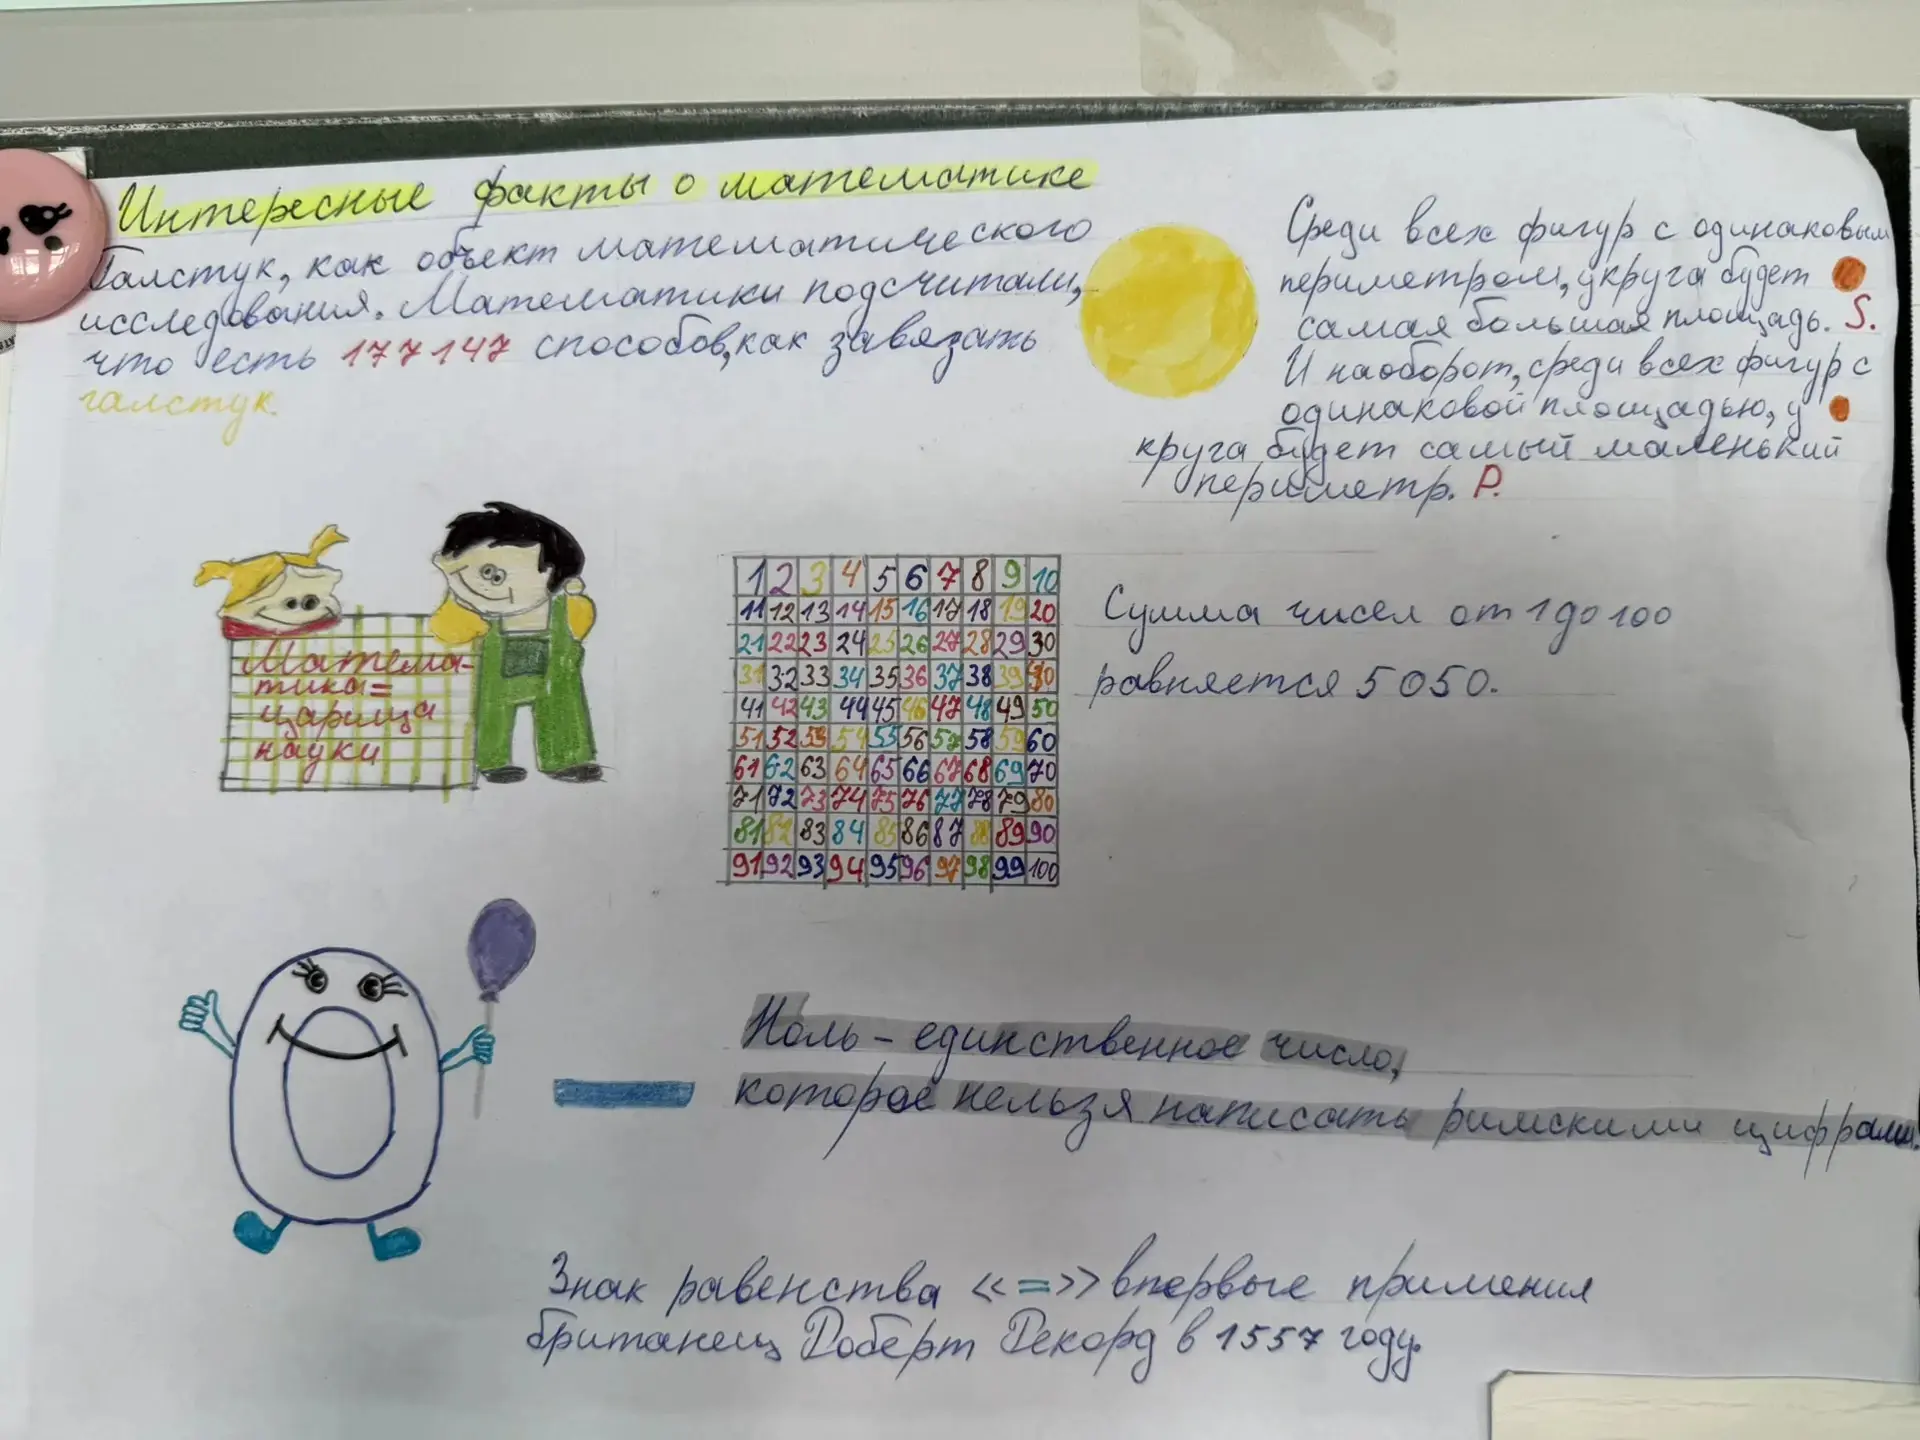 Интересные факты о математике
Галстук, как объект математического
исследования. Математики подсчитали,
что есть 177147 способов, как завязать
галстук.
Среди всех фигур с одинаковым
периметром, у круга будет
самая большая площадь. S.
И наоборот, среди всех фигур с
одинаковой площадью, у
круга будет самый маленький
периметр. P.
Матема-
тика=
царица
науки
1 2 3 4 5 6 7 8 9 10
11 12 13 14 15 16 17 18 19 20
21 22 23 24 25 26 27 28 29 30
31 32 33 34 35 36 37 38 39 40
41 42 43 44 45 46 47 48 49 50
51 52 53 54 55 56 57 58 59 60
61 62 63 64 65 66 67 68 69 70
71 72 73 74 75 76 77 78 79 80
81 82 83 84 85 86 87 88 89 90
91 92 93 94 95 96 97 98 99 100
Сумма чисел от 1 до 100
равняется 5050.
0
Ноль - единственное число,
которое нельзя написать римскими цифрами.
Знак равенства «=» впервые применил
британец Роберт Рекорд в 1557 году.